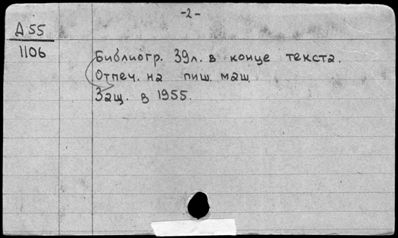 -2-
А 55
1106
Библиогр. 39 л. в конце текста.
Отпеч. на пиш. маш.
Защ. в 1955.